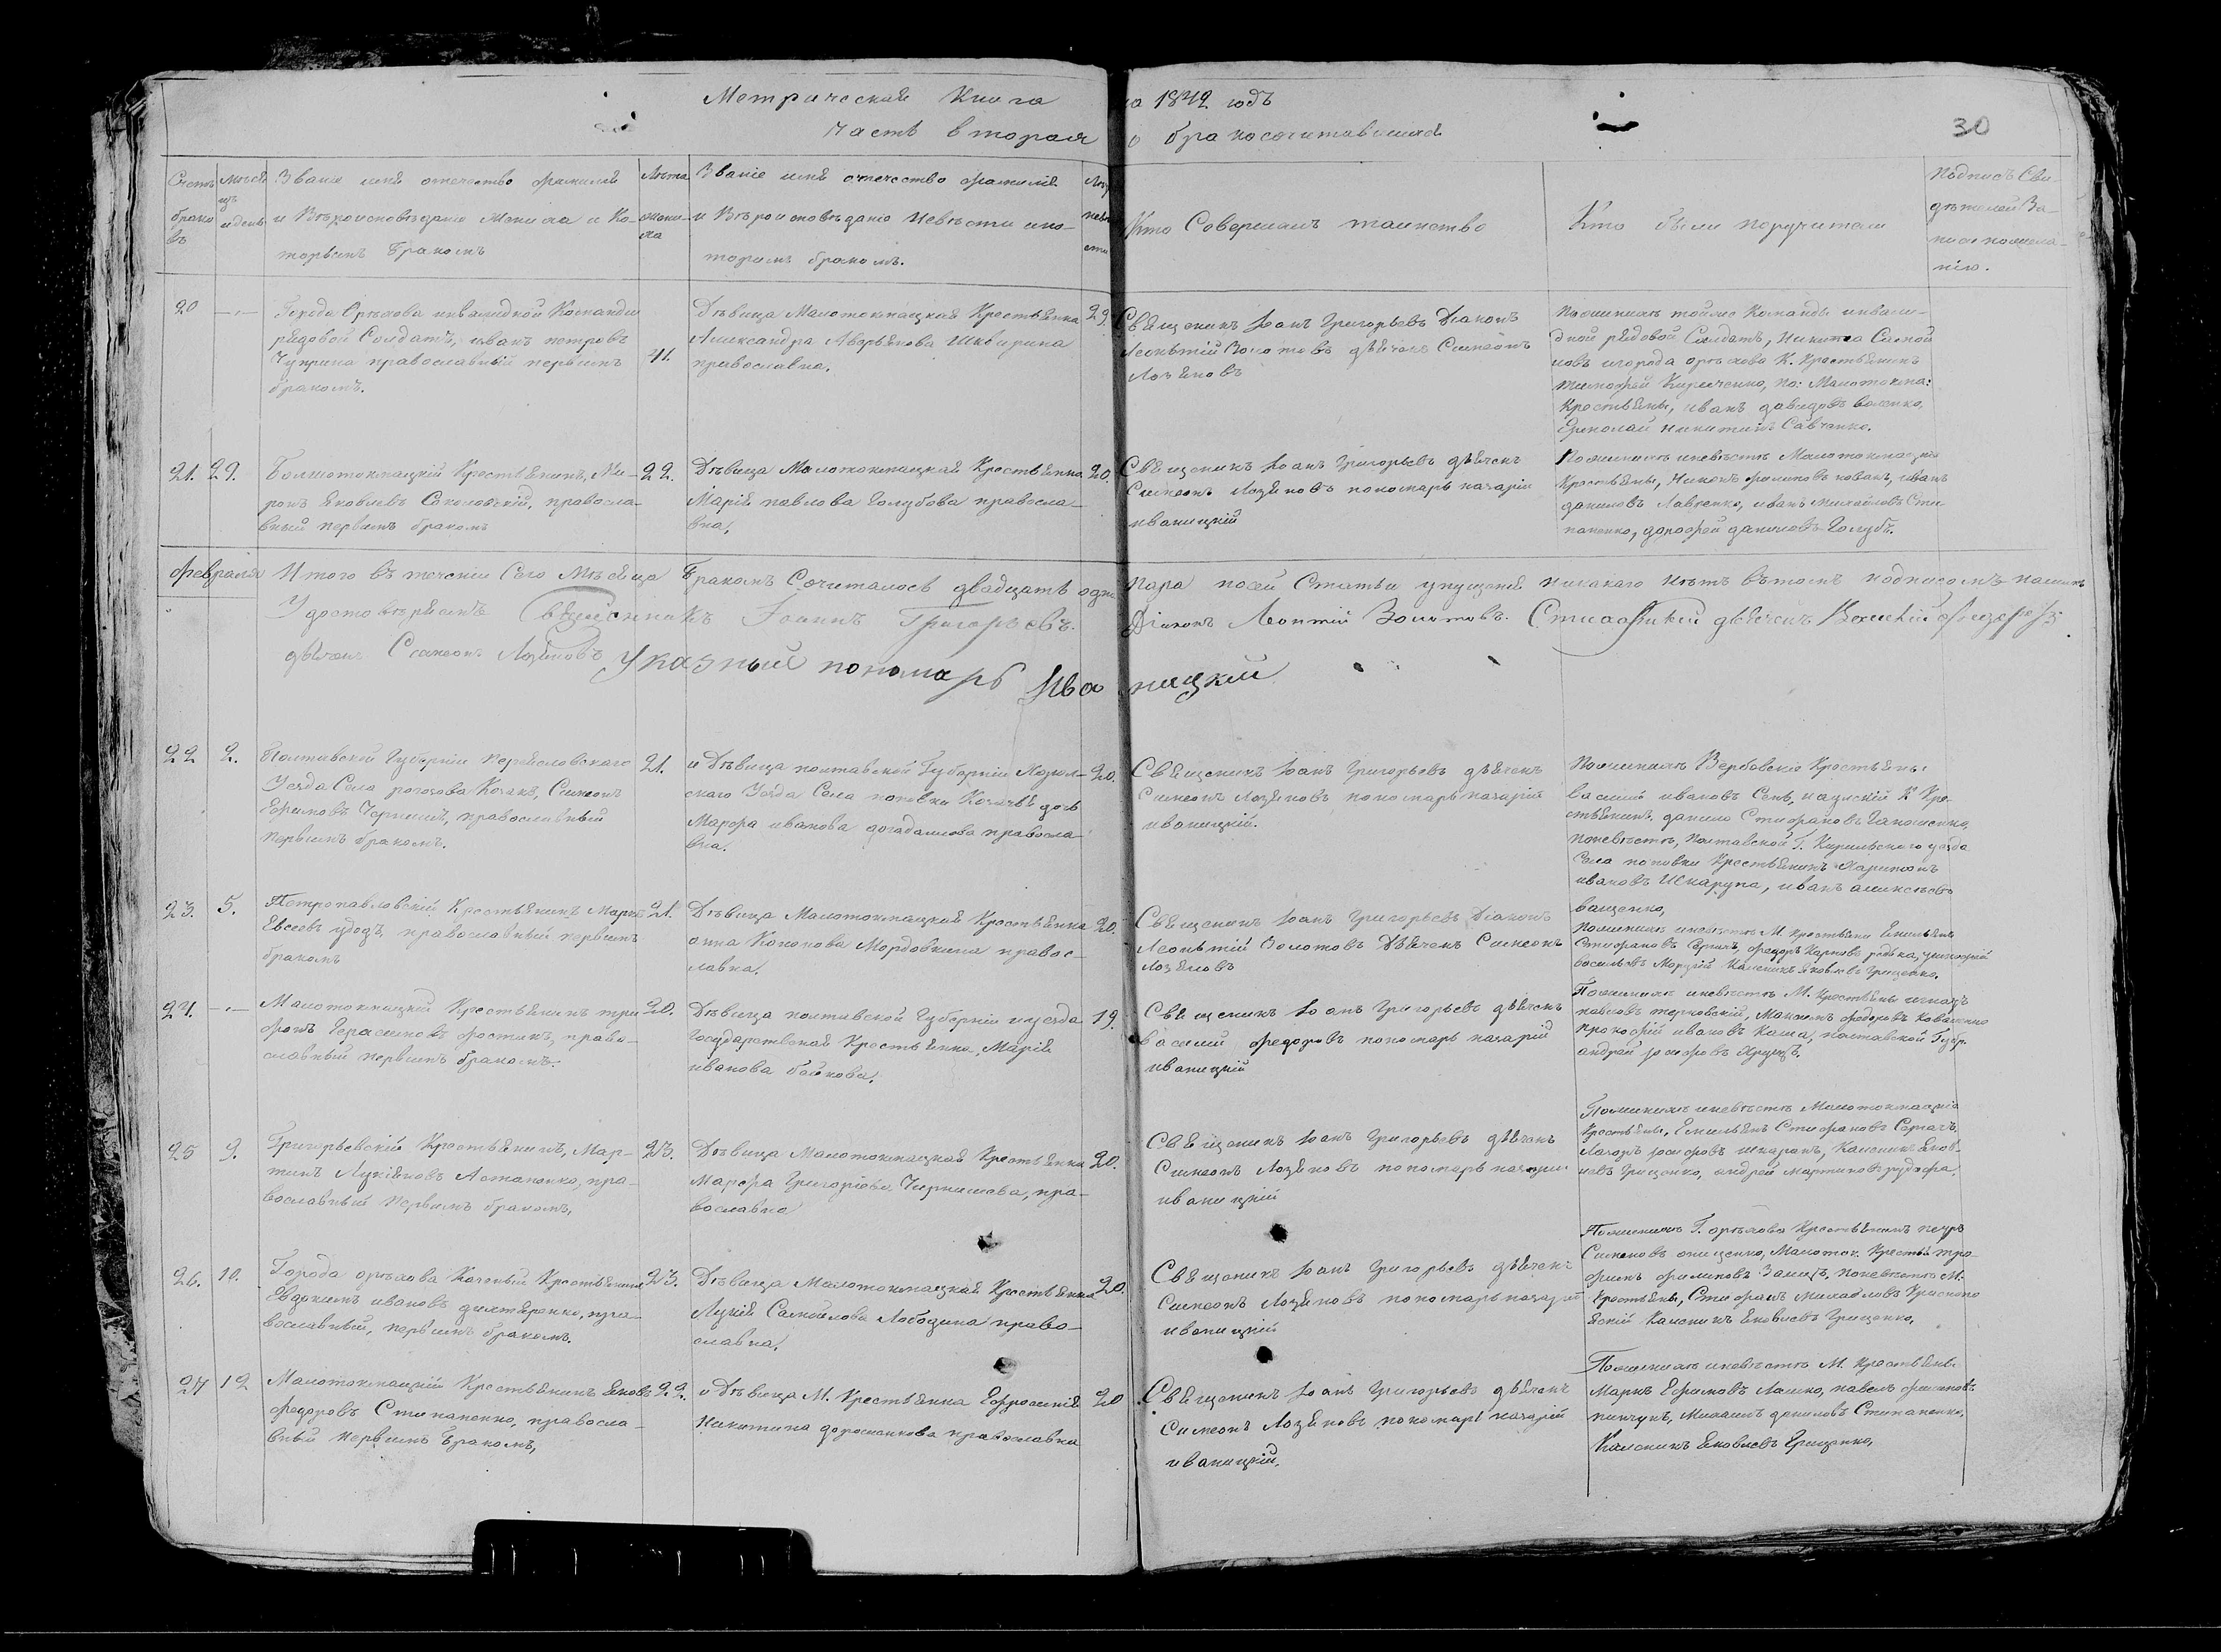 Метрическая Книга на 1842 годъ
Часть вторая о бракосочитавшихся
30
Счетъ браковъ
Мѣсяцъ и день
Званіе имя отечество фамилія
и Вѣроисповѣданіе Жениха и Ко-
торымъ Бракомъ
Лѣта жениха
Званіе имя отечество фамилія
и Вѣроисповѣданіе Невѣсти и ко-
торымъ бракомъ.
Кто Совершалъ таинство
Кто были поручители
Подпись Сви-
дѣтелей За-
писи по жела-
нію.
20
Города Орѣхова инвалидной Команди
рядовой Солдатъ, иванъ петровъ
Чуприна православный первымъ
бракомъ.
41.
Дѣвица Малотокмацкая Крестьянка
Александра Аверьянова Шквирина
православна.
29.
Священикъ Іоанъ Григорьевъ Діаконъ
Леонтій Золотовъ дьячекъ Симеонъ
Лозяновъ
По женихѣ тойже Команды инвали-
дной рядовой Солдатъ, Никита Самой
ловъ игорода орѣхова К. Крестьянинъ
тимофей Кириченко, по: Малотокма:
Крестьяны, иванъ давидовъ
Ермолай никитинъ Савченко.
21. 29.
Болшотокмацкій Крестьянинъ, Ми-
ронъ Яковлевъ Соколовскій, правосла-
вный первымъ бракомъ
22.
Дѣвица Малотокмацкая Крестьянка
Марія павлова Голубова правосла-
вна,
20.
Священикъ Іоанъ Григорьевъ дьячекъ
Симеонъ Лозяновъ пономарь назарій
иваницкій
По женихѣ иневѣстѣ Малотокмацкіе
Крестьяны, Никонъ филиповъ ковалъ, иванъ
даниловъ Лавренко, иванъ Михайловъ Сти-
паненко, дорофей даниловъ Голубъ.
февраля
Итого въ теченіи Сего Мѣсяца Бракомъ Сочиталось двадцать одна пара посей Статьи упущеній никакаго нѣтъ вътомъ подписомъ нашимъ
Удостовѣряемъ Священникъ Іоаннъ Григорьевъ. Діаконъ Леонтій Золотовъ. дьячекъ Василій Федоровъ.
дьячекъ Симеонъ Лозяновъ Указный пономарь Иваницкій
22 2.
Полтавской Губерніи Переясловскаго
Уезда Села рогозова Козакъ, Симеонъ
Ефимовъ Черниш, православный
первымъ бракомъ.
21.
и Дѣвица полтавской Губерніи
скаго Уезда Села поповки Козачья дочь
Марфа иванова догадаилова правосла-
вна.
20.
Священикъ Іоанъ Григорьевъ дьячекъ
Симеонъ Лозяновъ пономарь назарій
иваницкій.
По женихѣ Вербовскіе Крестьяны
василій ивановъ К. Кре-
стьянинъ, данило Стифановъ
поневѣстѣ, полтавской Г. уезда
Села поповки Крестьянинъ Харитонъ
ивановъ Шкарупа, иванъ алексѣевъ
ващенко,
23. 5.
Петропавловскій Крестьянинъ Марко
Евсеевъ удодъ, православный первымъ
бракомъ
21.
Дѣвица Малотокмацкая Крестьянка
анна Кононова Мордовкина правос-
лавна.
20.
Священикъ Іоанъ Григорьевъ Діаконъ
Леонтій Золотовъ Дьячекъ Симеонъ
Лозяновъ
По женихѣ иневѣстѣ М. Крестьяни Емильянъ
Стифановъ Сергачъ, федоръ Карповъ редька,
васильевъ Каленикъ Яковлевъ Грищенко.
24.
Малотокмацкій Крестьянинъ три
фонъ Герасимовъ фостикъ, право-
славный первымъ бракомъ.
20.
Дѣвица полтавской Губерніи иуезда
Государтвеная Крестьянка, Марія
иванова бойкова,
19.
Священикъ Іоанъ Григорьевъ дьячекъ
василий федоровъ пономарь назарій
иваницкій
По женихѣ иневѣстѣ М. Крестьяны игнатъ
павловъ терновскій, Максимъ федоровъ Коваленко
прокофій ивановъ Каша, полтавской Губер.
андрей іосифовъ Хрущъ.
25 9.
Григорьевскій Крестьянинъ, Мар-
тинъ Лукіяновъ Астапенко, пра-
вославный первымъ бракомъ,
23.
Дѣвица Малотокмацкая Крестьянка
Марфа Григоріева Чернишова, пра-
вославна
20.
Священикъ Іоанъ Григорьевъ дьячекъ
Симеонъ Лозяновъ пономарь назарій
иваницкій
По женихѣ иневѣстѣ Малотокмацкіе
Крестьяны, Емильянъ Стифановъ Сергачъ,
Лазоръ іосифовъ Каленикъ Яков-
левъ Грищенко, андрей мартиновъ
26. 10.
Города орѣхова Казеный Крестьянинъ
Евдокимъ ивановъ дихтяренко, пра-
вославный, первымъ бракомъ.
23.
Дѣвица Малотокмацкая Крестьянка
Лукія Самойлова Лободина право-
славна.
20.
Священикъ Іоанъ Григорьевъ дьячекъ
Симеонъ Лозяновъ пономарь назарій
иваницкій
По женихѣ Г. орѣхова Крестьянинъ петръ
Симоновъ онищенко, Малоток. Крестья. тро-
фимъ филиповъ Заяцъ, поневѣстѣ М.
Крестьяны, Стифанъ Михайловъ
Каленикъ Яковлевъ Грищенко,
27 12
Малотокмацкій Крестьянинъ Яковъ
федоровъ Стипаненко, правосла-
вный первымъ Бракомъ,
22.
и Дѣвица М. Крестьянка Ефросинія
Никитина дорошенкова православна
20
Священикъ Іоанъ Григорьевъ дьячекъ
Симеонъ Лозяновъ пономарь назарій
иваницкій.
По женихѣ иневѣстѣ М. Крестьяны
Маркъ Ефимовъ Ляшко, павелъ филиповъ
пинчукъ, Михаилъ даниловъ Стипаненко,
Каленикъ Яковлевъ Грищенко,